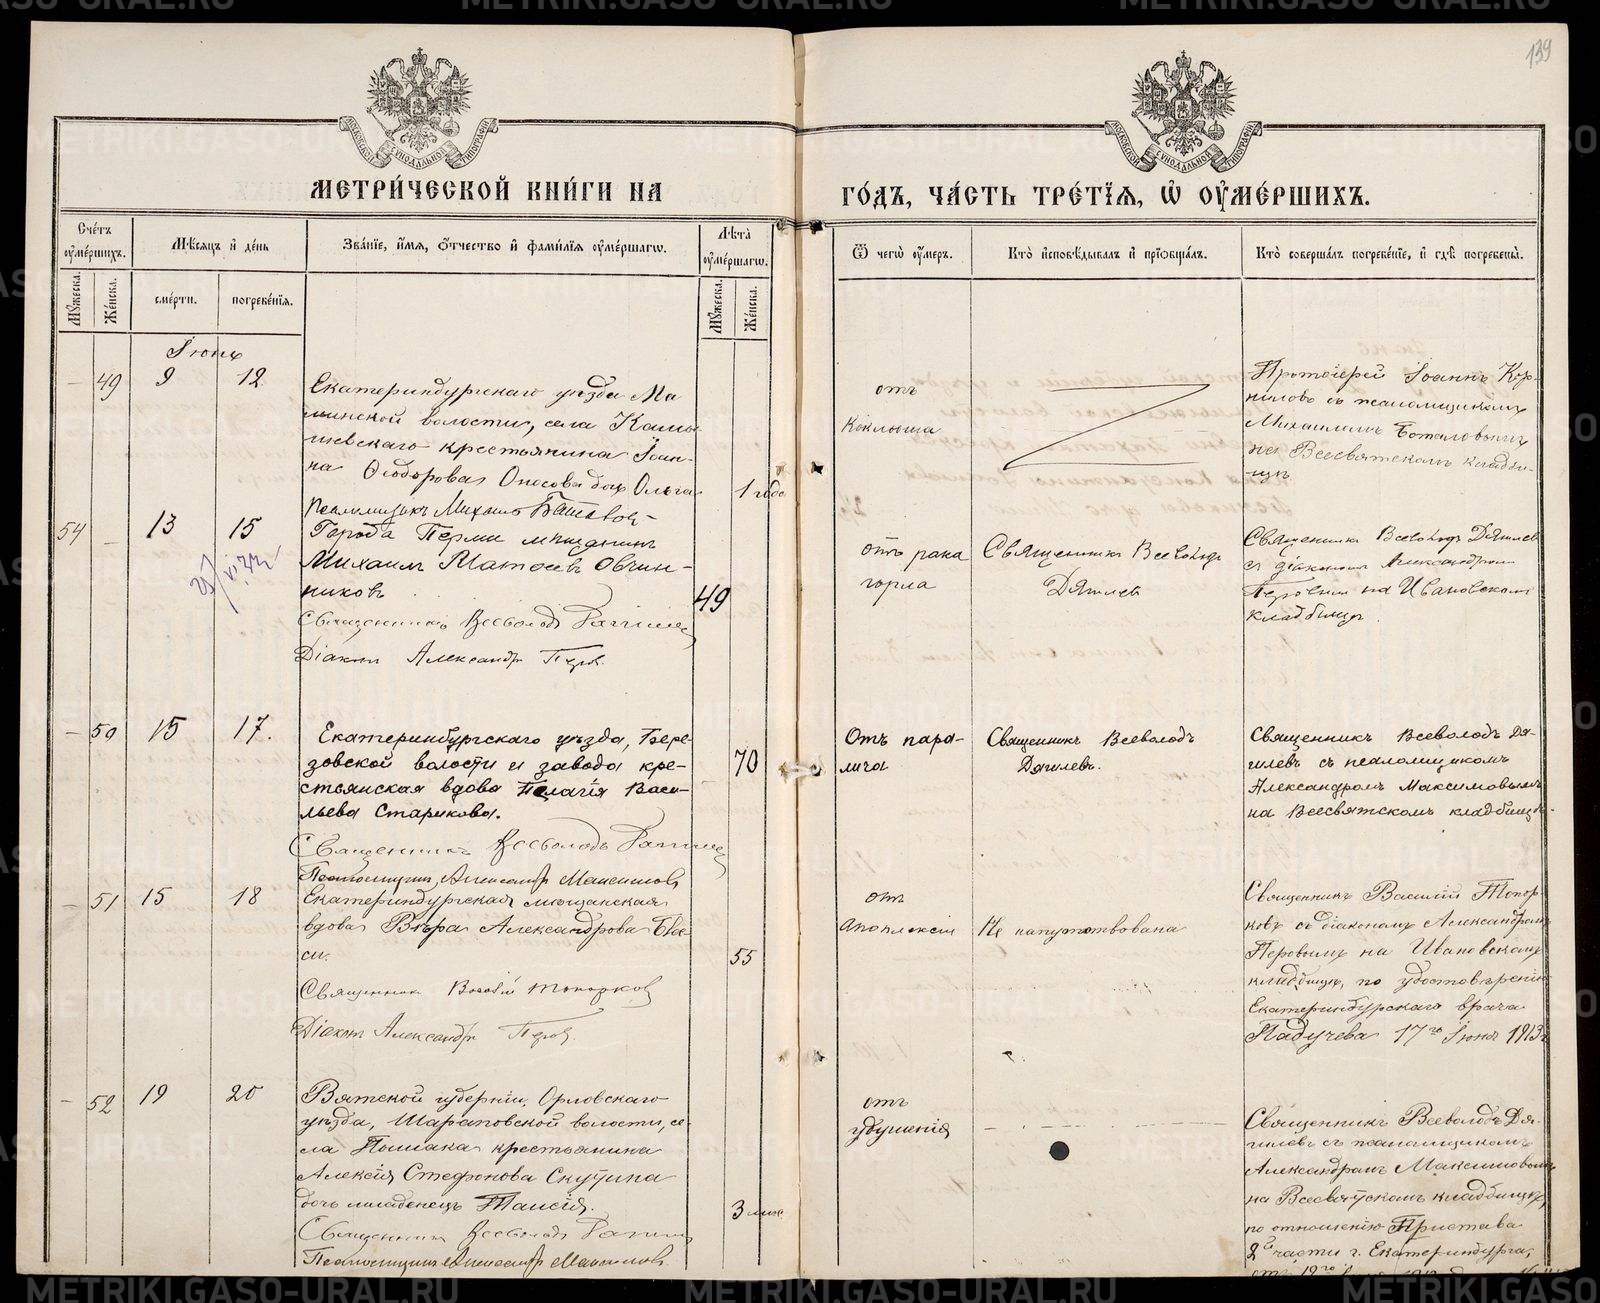 139
МОСКОВСКОЙ СѴНОДАЛЬНОЙ ТИПОГРАФІИ
МОСКОВСКОЙ СѴНОДАЛЬНОЙ ТИПОГРАФІИ
МЕТРИ́ЧЕСКОЙ КНИ́ГИ НА
ГО́ДЪ, ЧА́СТЬ ТРЕ́ТІѦ, Ѡ ОУ҆МЕ́РШИХЪ.
Сче́тъ оу҆ме́ршихъ.
Мꙋ́жеска.
Же́нска.
Мѣ́сяцъ и҆ де́нь
сме́рти.
погребе́нїѧ.
Зва́нїе, и҆́мѧ, ѻ҆́тчество и҆ фами́лїѧ оу҆ме́ршагѡ.
Лѣ́та оу҆ме́ршагѡ.
Мꙋ́жеска.
Же́нска.
Ѿ чегѡ̀ оу҆́меръ.
Кто̀ и҆сповѣ́дывалъ и҆ прїѡбща́лъ.
Кто̀ соверша́лъ погребе́нїе, и҆ гдѣ̀ погребены̀.
Іюнь
— 49 9 12
Екатеринбургскаго уѣзда Ма
минской волости, села Камы-
шевскаго крестьянина Іоан-
на Ѳеодорова дочь Ольга
1 года
Псаломщикъ Михаилъ
отъ
Коклюша
Протоіерей Іоаннъ Кор-
ниловъ съ псаломщикомъ
Михаиломъ
на Всесвятскомъ кладби-
щѣ
54 — 13 15
Города Перми мѣщанинъ
Михаилъ Матѳеевъ Овчин-
никовъ
49
Священникъ Всеволодъ Дягилевъ
Діаконъ Александръ Перовъ
отъ рака
горла
Священникъ Всеволодъ
Дягилевъ
Священникъ Всеволодъ Дягилевъ
съ діакономъ Александромъ
Перовымъ на Ивановскомъ
кладбищѣ.
— 50 15 17.
Екатеринбургскаго уѣзда, Бере-
зовской волости и завода кре-
стьянская вдова Пелагія Васи-
льева Старикова.
70
Священникъ Всеволодъ Дягилевъ
Псаломщикъ Александръ Максимовъ
Отъ пара-
лича
Священникъ Всеволодъ
Дягилевъ.
Священникъ Всеволодъ Дя-
гилевъ съ псаломщикомъ
Александромъ Максимовымъ
на Всесвятскомъ кладбищѣ.
— 51 15 18
Екатеринбургская мѣщанская
вдова Вѣра Александрова
55
Священникъ Василій Топорковъ
Діаконъ Александръ Перовъ.
отъ
Апоплексіи
Не напутствована
Священникъ Василій Топор-
ковъ съ діакономъ Александромъ
Перовымъ на Ивановскомъ
кладбищѣ, по удостовѣренію
Екатеринбургскаго врача
Падучева 17го Іюня 1913 г.
— 52 19 20
Вятской губерніи, Орловскаго
уѣзда, Шараповской волости, се-
ла крестьянина
Алексія Стефанова
дочь младенецъ Таисія.
3 мѣс
Священникъ Всеволодъ Дягилевъ
Псаломщикъ Александръ Максимовъ
отъ
удушенія
Священникъ Всеволодъ Дя-
гилевъ съ псаломщикомъ
Александромъ Максимовымъ
на Всесвятскомъ кладбищѣ,
по отношенію Пристава
2й части г. Екатеринбурга,
METRIKI.GASO-URAL.RU